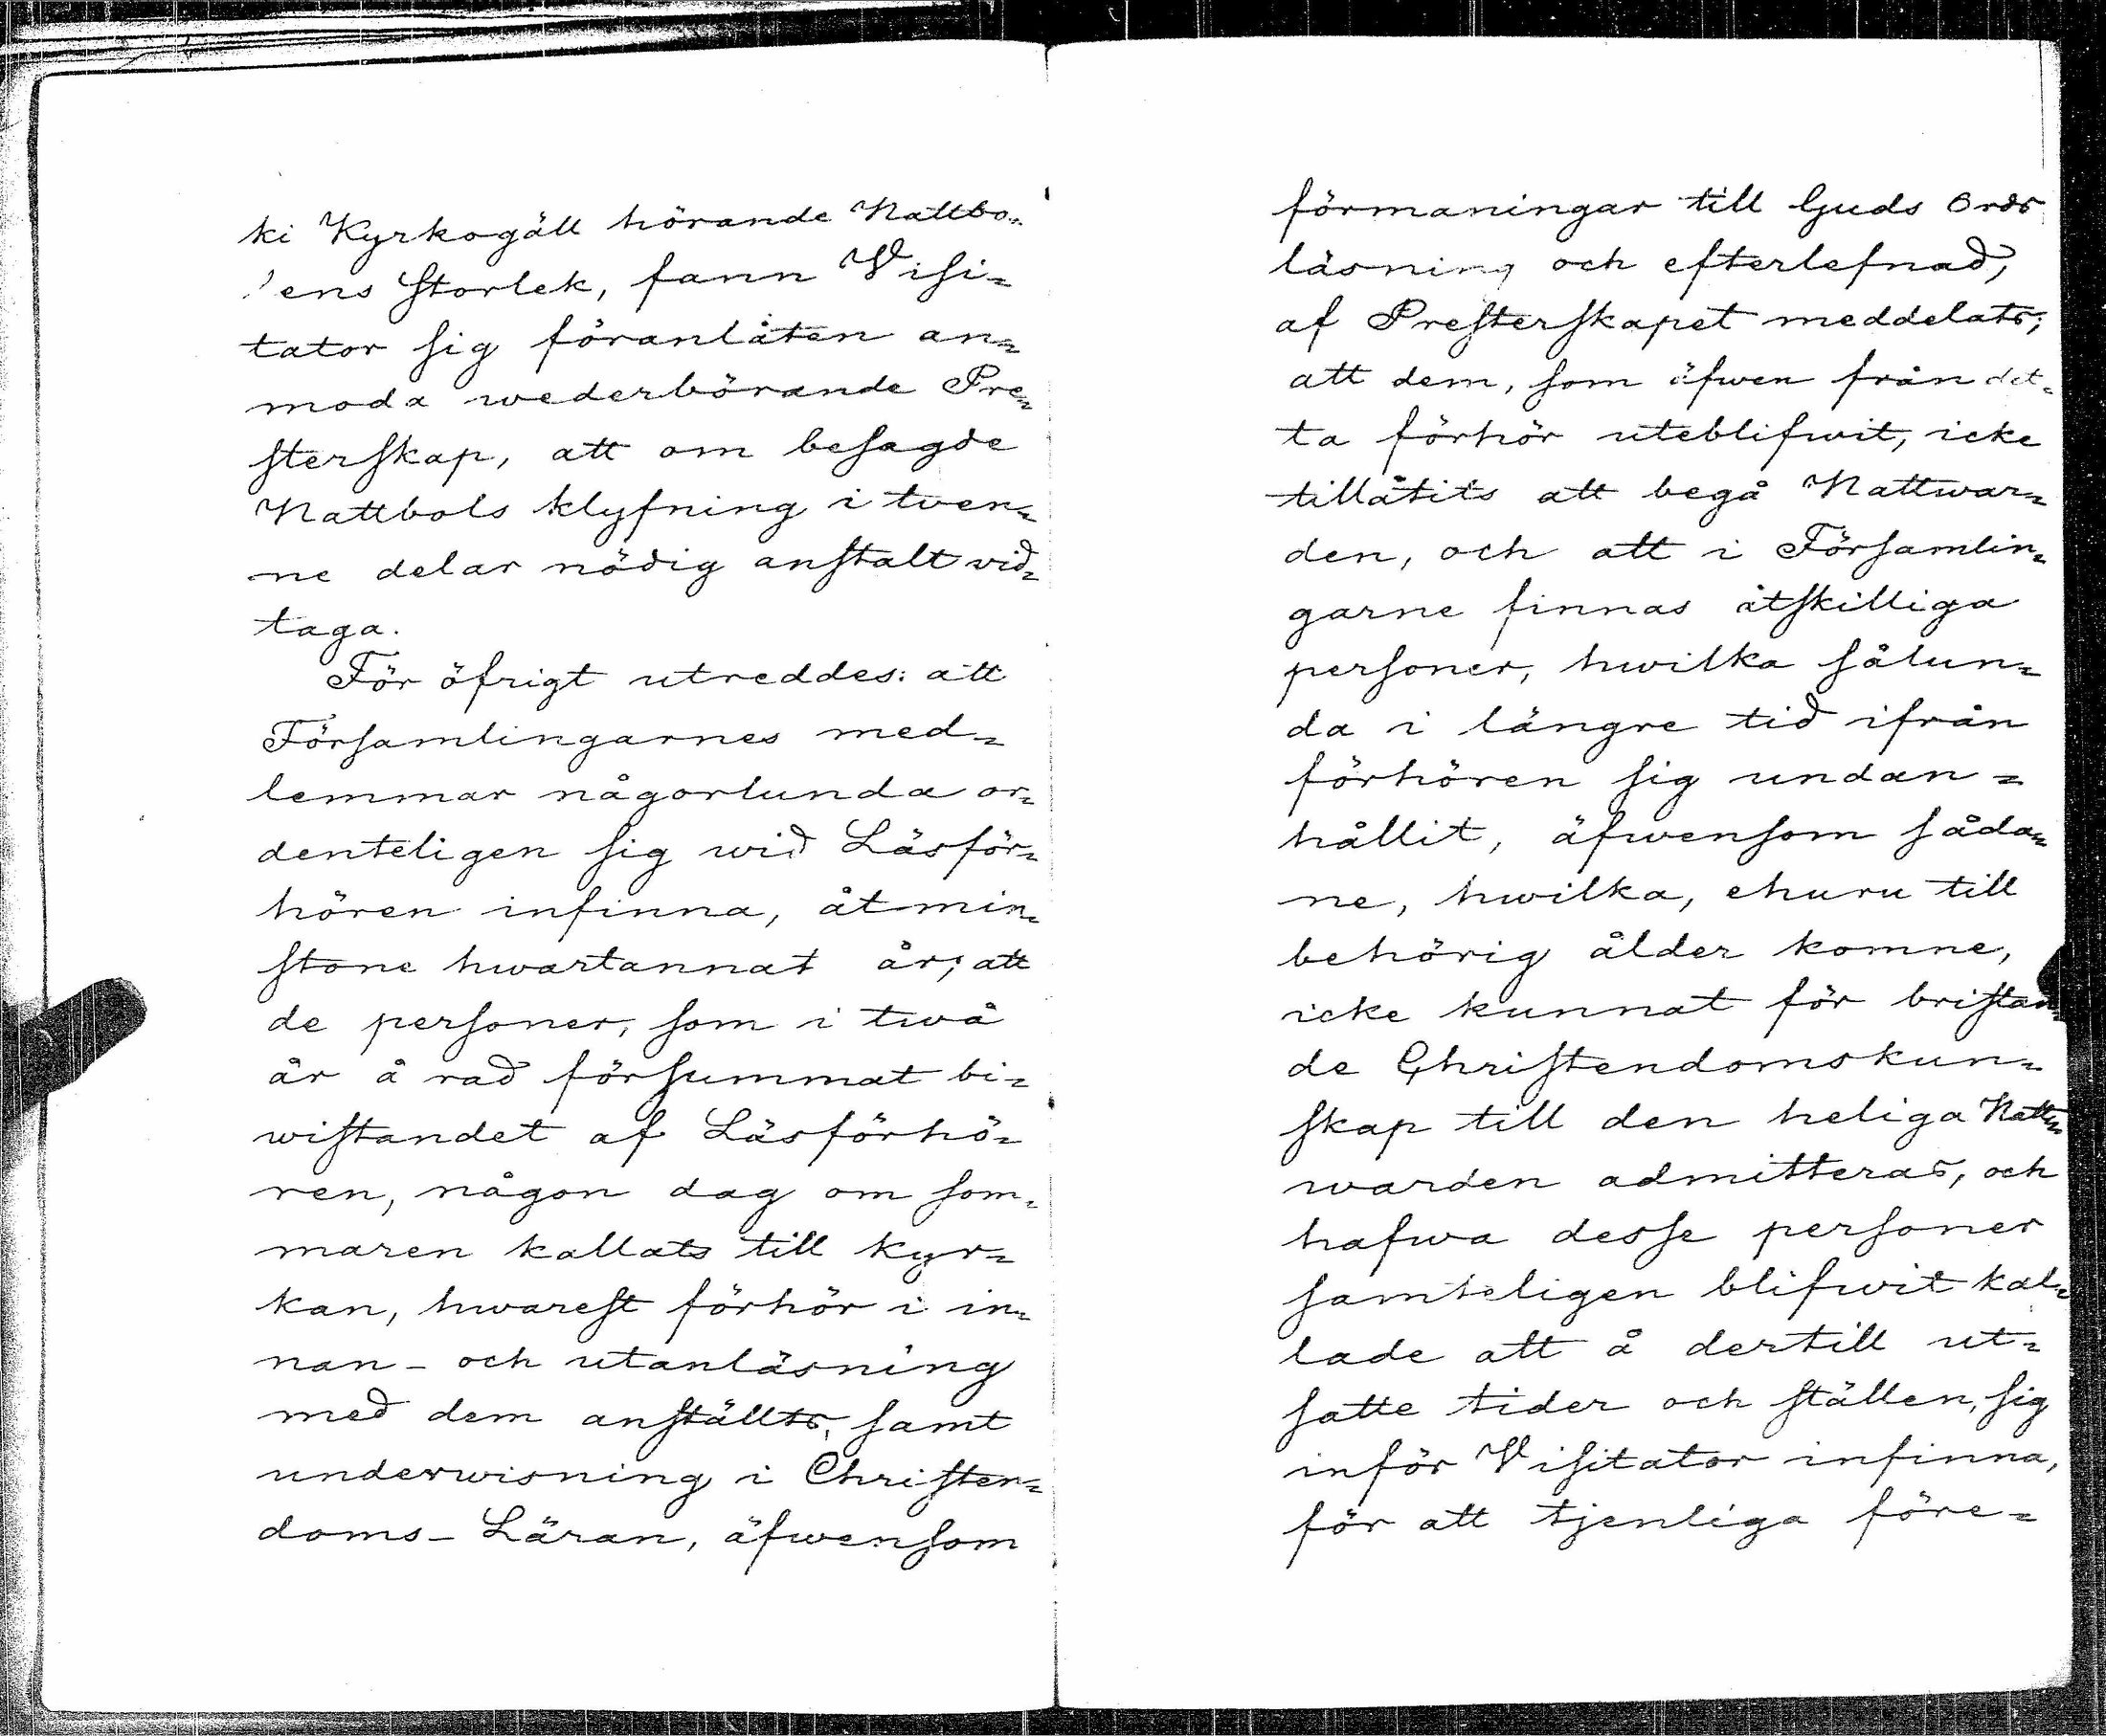 ki Kyrkogäll hörande Nattbo-
lens Storlek, fann Visi-
tator sig föranlåten an-
moda wederbörande Pre-
sterskap, att om besagde
Nattbols klyfning i tven-
ne delar nödig anstalt vid-
taga.
För öfrigt utreddes: att
Församlingarnes med-
lemmar någorlunda or-
denteligen sig wid Läsför-
hören infinna, åtmin-
stone hwartannat år; att
de personer, som i twå
år å rad försummat bi-
wistandet af Läsförhö-
ren, någon dag om som-
maren kallats till Kyr-
kan, hwarest förhör i in-
nan- och utanläsning
med dem anställts, samt
underwisning i Christen-
doms-Läran, äfwensom
förmaningar till Guds Ords
läsning och efterlefnad,
af Presterskapet meddelats;
att dem, som äfwen från det-
ta förhör uteblifwit, icke
tillåtits att begå Nattwar-
den, och att i Församlin-
garne finnas åtskilliga
personer, hwilka sålun-
da i längre tid ifrån
förhören sig undan-
hållit, äfwensom såda-
ne, hwilka, ehuru till
behörig ålder komne,
icke kunnat för bristan-
de Christendomskun-
skap till den heliga Natt-
warden admitteras, och
hafwa desse personer
samteligen blifwit kal-
lade att å dertill ut-
satte tider och ställen, sig
inför Visitator infinna,
för att tjenliga före-